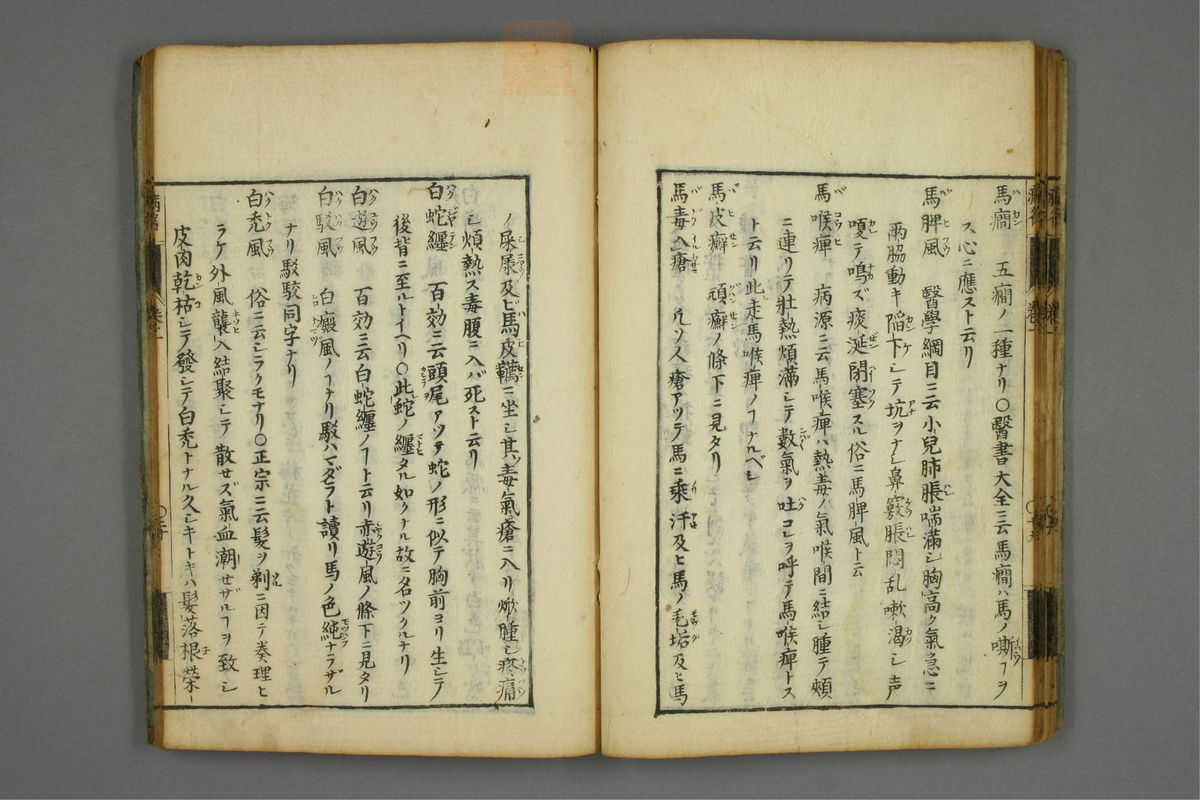 馬癇 五癇ノ一種ナリ○醫書大全ニ云馬癇ハ馬ノ嘶フヲ
ス心ニ應スト云リ
馬脾風 醫學綱目ニ云小兒肺脹喘滿シ胸高ク氣急ニ
兩脇動キ陷下シテ坑ヲナシ鼻竅脹悶乱嗽渴シ声
嗄テ鳴ズ痰涎閉塞スル俗ニ馬脾風ト云
馬喉痺 病源ニ云馬喉痺ハ熱毒ノ氣喉間ニ結シ腫テ頰
ニ連リテ壯熱煩滿シテ數氣ヲ吐コレヲ呼テ馬喉痺トス
ト云リ此走馬喉痺ノフナルベシ
馬皮癬 頑癬ノ條下ニ見タリ
馬毒入瘡 凡ソ人瘡アツテ馬ニ乘汗及ヒ馬ノ毛垢及ヒ馬
ノ屎尿及ビ馬皮韉ニ坐シ其毒氣瘡ニ入リ焮腫シ疼痛
シ煩熱ス毒腹ニ入バ死スト云リ
白蛇纏 百効ニ云頭尾アツテ蛇ノ形ニ似テ胸前ヨリ生シテ
後背ニ至ルトイヘリ○此蛇ノ纏タル如クナル故ニ名ツクルナリ
白遊風 百効ニ云白蛇纏ノフト云リ赤遊風ノ條下ニ見タリ
白駁風 白癜風ノフナリ駁ハマダラト讀リ馬ノ色純ナラザル
ナリ駁駮同字ナリ
白禿風 俗ニ云シラクモナリ○正宗ニ云髮ヲ剃ニ因テ腠理ヒ
ラケ外風襲入結聚シテ散セズ氣血潮セザルフヲ致シ
皮肉乾枯シテ發シテ白禿トナル久シキトキハ髮落根榮